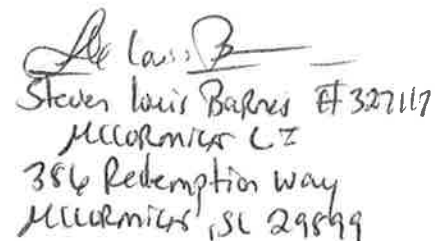 Steven Louis Barnes #327117
McCormick CI
386 Redemption Way
McCormick, SC 29899